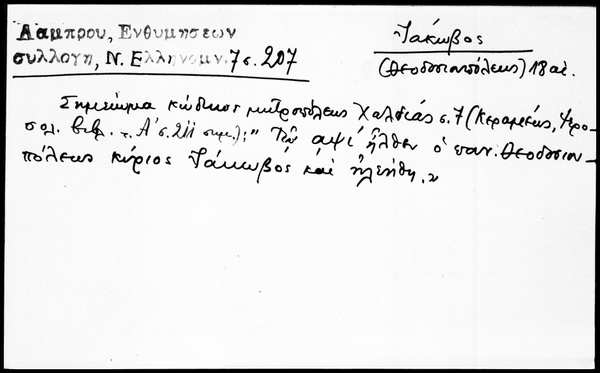 Λαμπρου, Ενθυμησεων
συλλογη, Ν. Ελληνομν. 7 σ. 207
Ἰάκωβος
(Θεοδοσιουπόλεως) 18 αἰ.
Σημείωμα κώδικος μητροπόλεως Χαλδίας σ. 7 (Κεραμεύς, Ἱερο-
σολ. βιβλ. τ. Α' σ. 211 σημ.): " Τῷ αψι' ἦλθεν ὁ παν. Θεοδοσιου-
πόλεως κύριος Ἰάκωβος καὶ ἠλεήθη. »